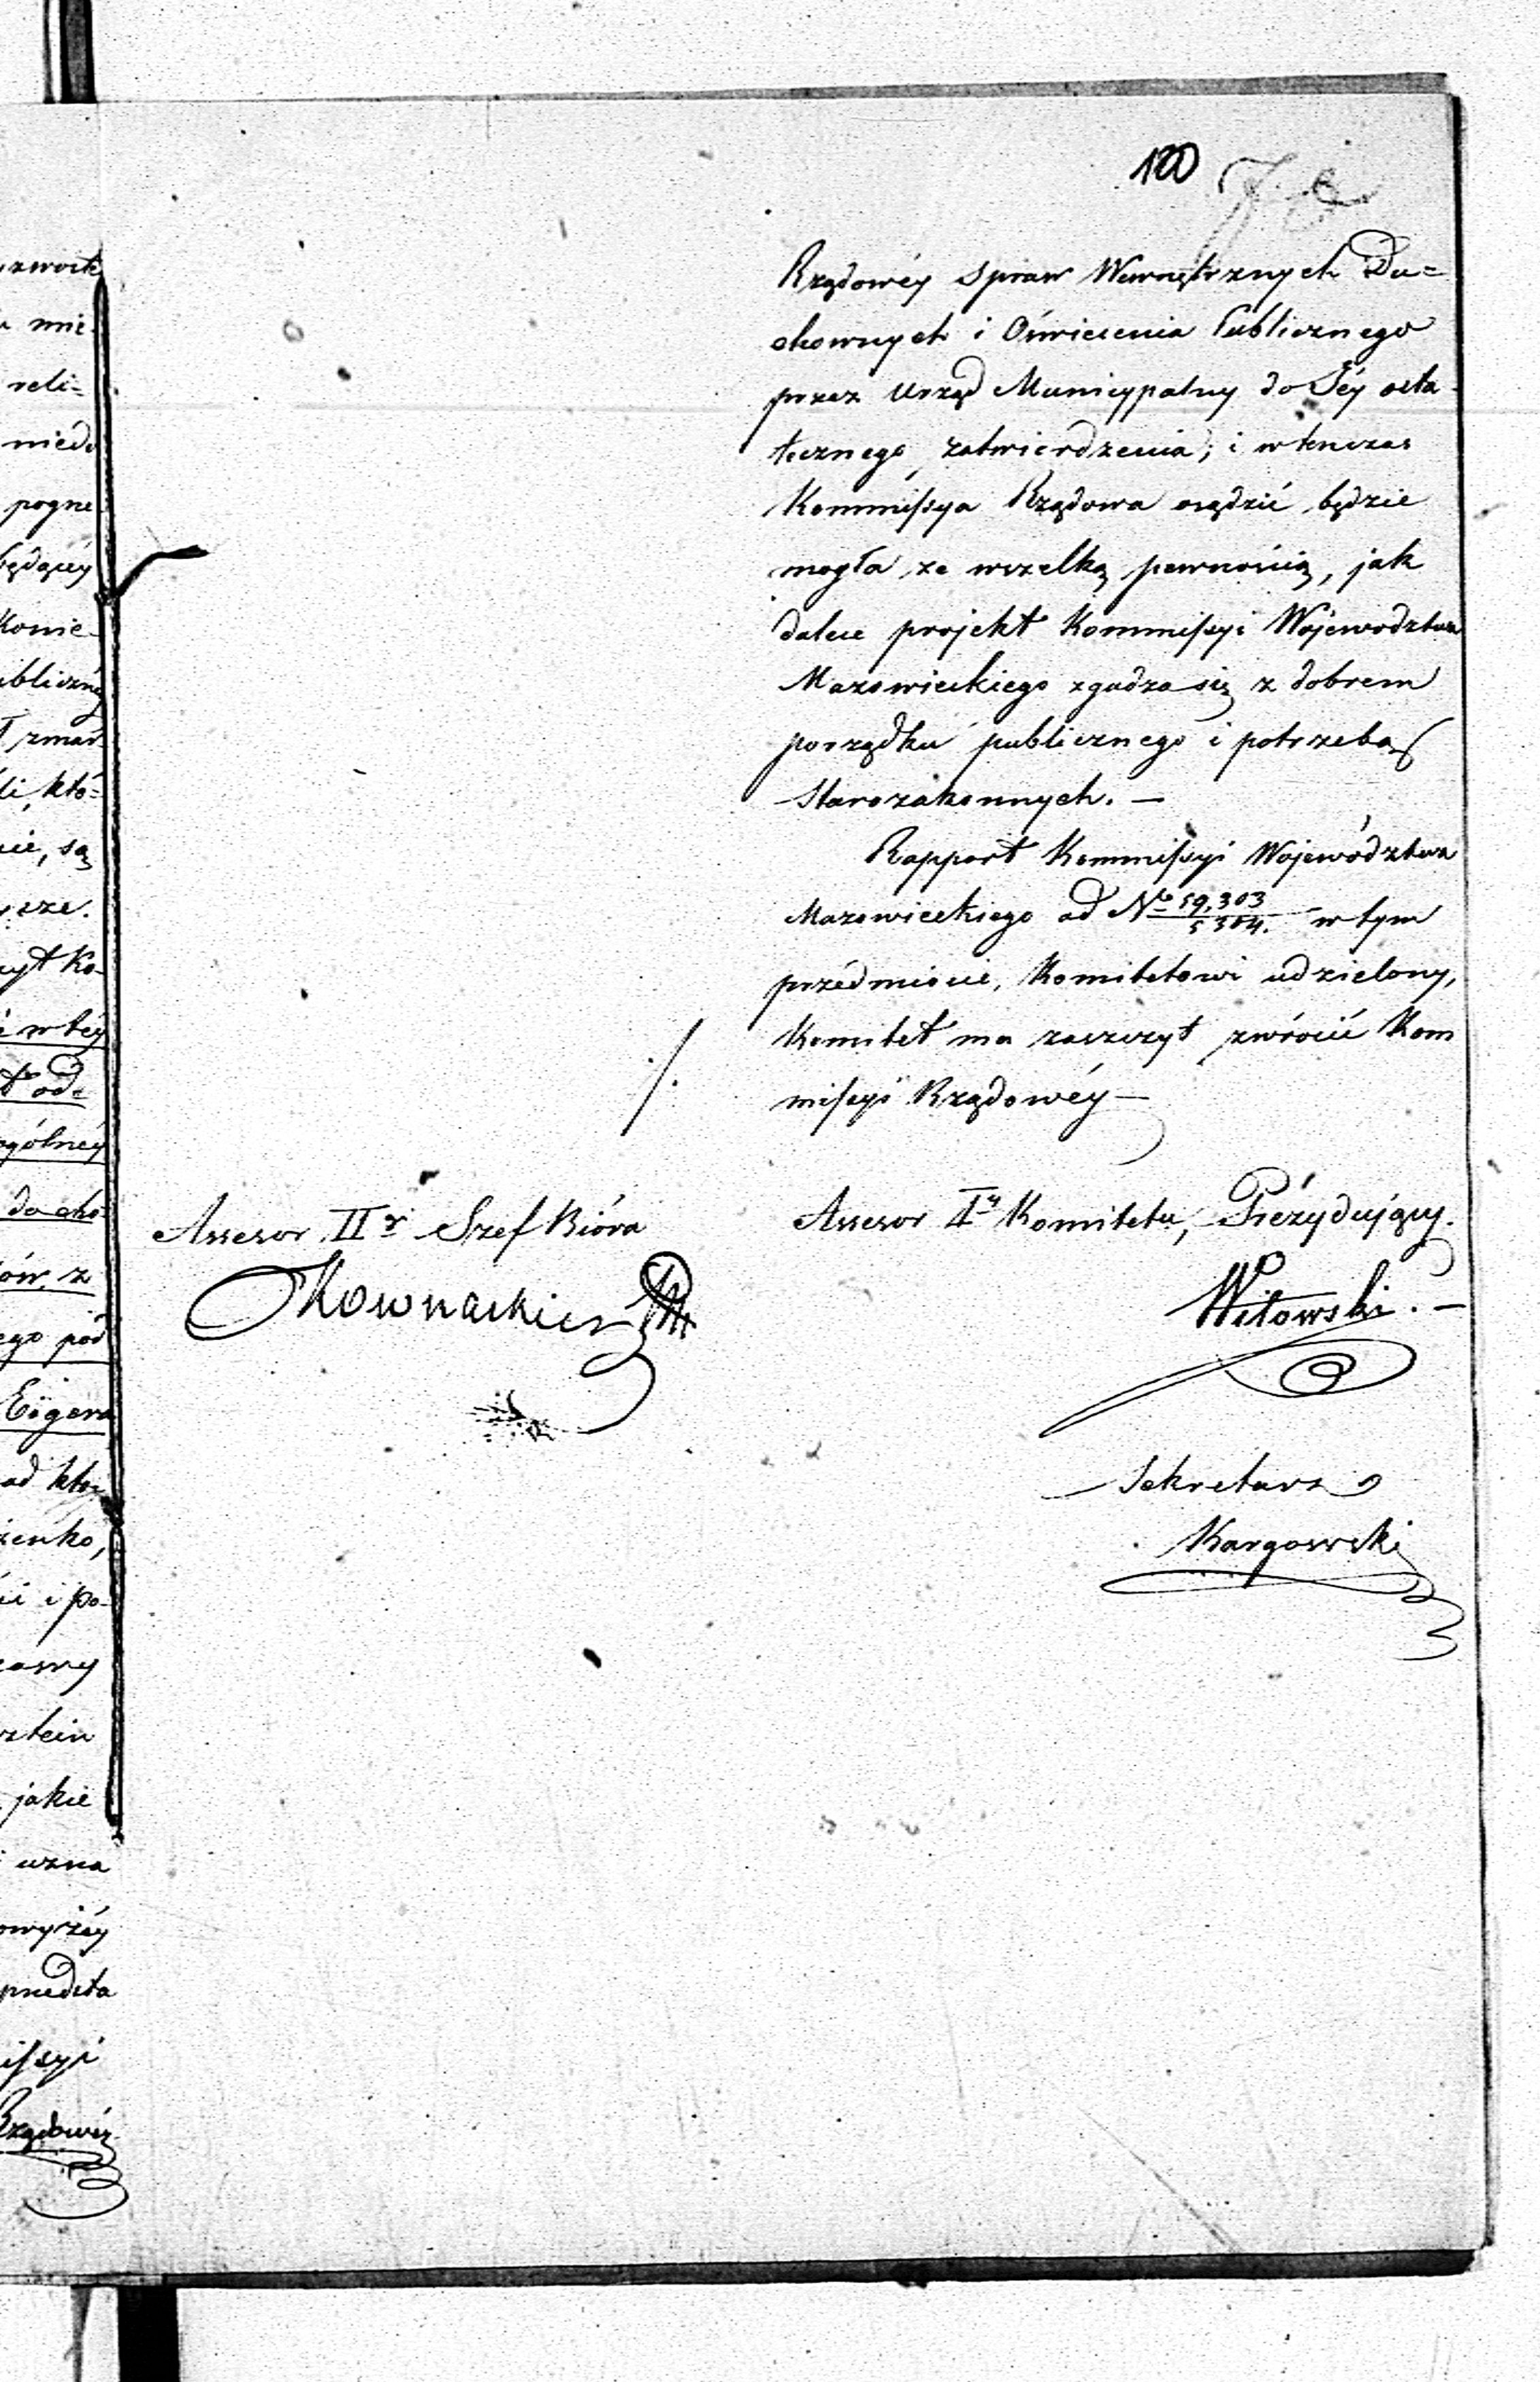 100
Rządowéy Spraw Wewnętrznych Du=
chownych i Oświecenia Publicznego
przez Urząd Municypalny do Jéy osta
tecznego zatwierdzenia; i wtenczas
Kommissya Rządowa osądzić będzie
mogła ze wszelką pewnością, jak
dalece projekt Kommissyi Województwa
Mazowieckiego zgadza się z dobrem
porządku publicznego i potrzebą
Starozakonnych. —
Rapport Kommissyi Województwa
Mazowieckiego ad No 59,303/5304. w tym
przedmiocie, Komitetowi udzielony,
Komitet ma zaszczyt zwrócić Kom
missyi Rządowéy —
Assesor IIr Szef Bióra
Assesor Iy Komitetu, Prezydujący.
Witowski. —
Sekretarz
zwosk
mie
reli=
niedo
pogrze
będącéy
Konie
ubliczné
zmar
li, któ=
cie, są
sze.
zyt Ko
w téy
t od=
ogólnéy
do cho=
ów, z
ego pod
Eigera
ad któ
żenko,
ci i po
zasny
sztein
jakie
uzna
owyżéy
przedsta
issyi
Rządowéy